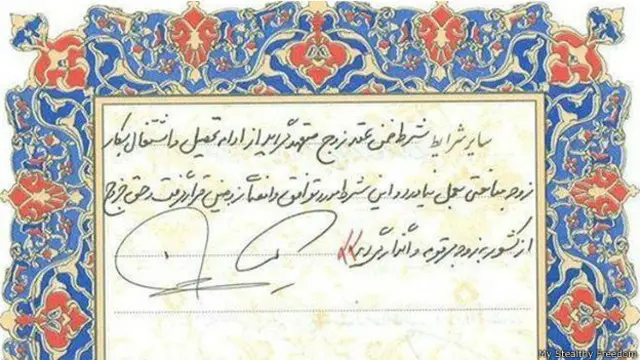 سایر شرایط شرط ضمن عقد زوج متعهد گردید از ادامه تحصیل و اشتغال بکار
زوجه ممانعتی بعمل نیاورد و این شرط مورد توافق و امضاء زوجین قرار گرفت و حق خروج
از کشور به زوجه مرقومه واگذار گردید
My Stealthy Freedom